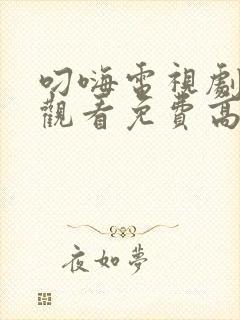 叼嗨電視劇
觀看免費高
夜如夢